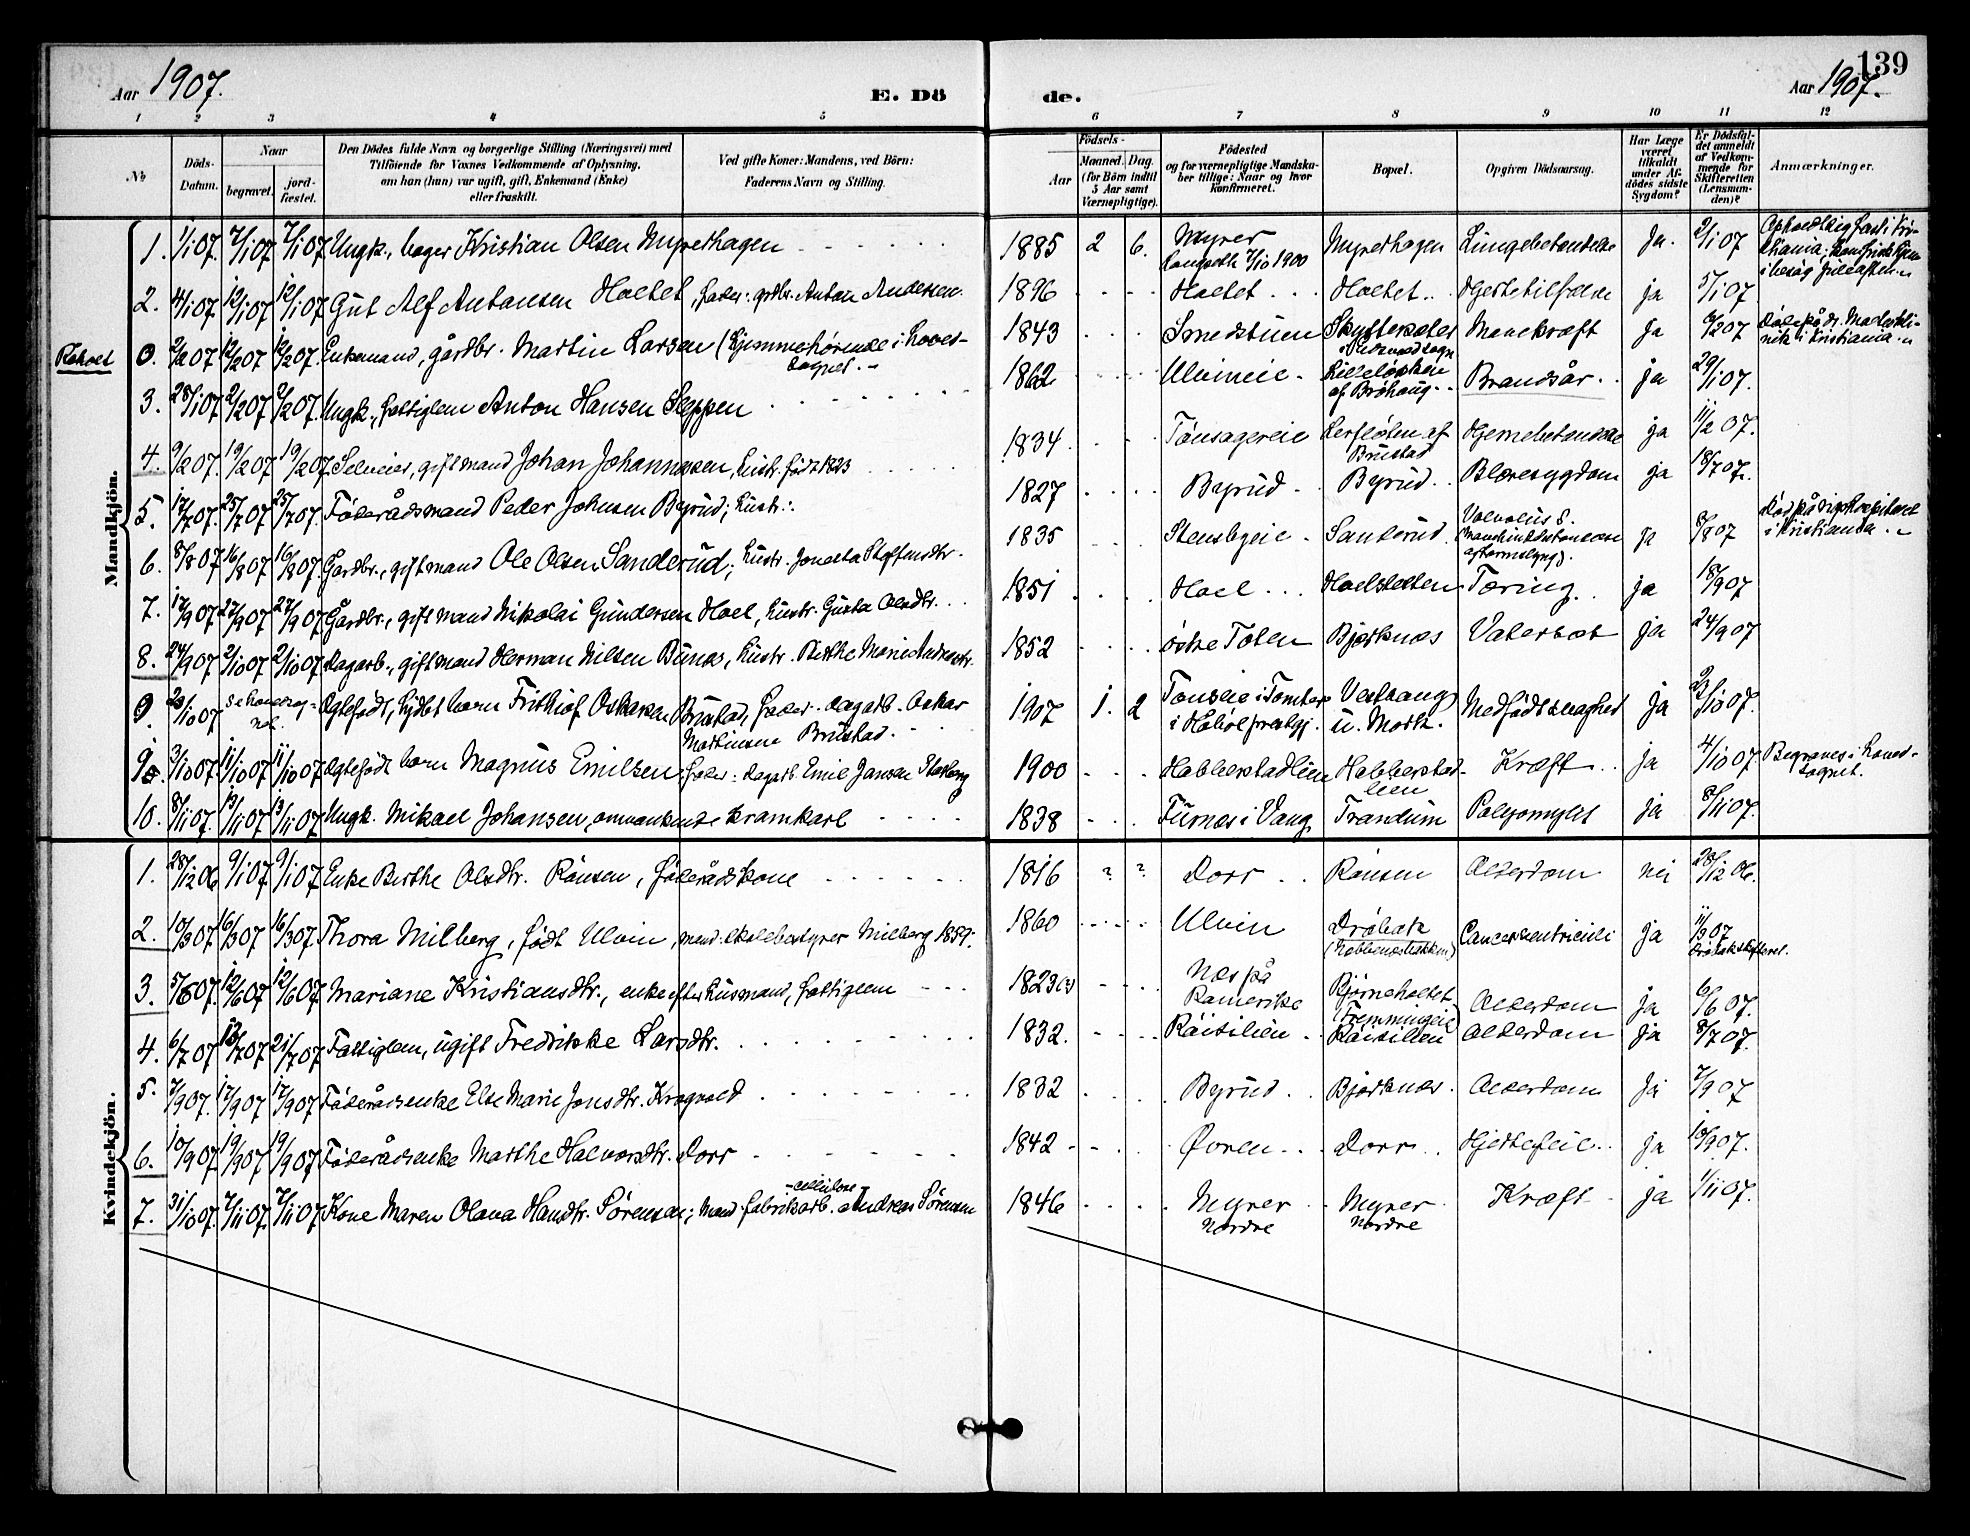 139
Aar 1907.
E. Dö
de.
Aar 1907.
1 2 3 4 5 6 7 8 9 10 11 12
No
Döds-
Datum.
Naar
begravet.
jord-
fæstet.
Den Dödes fulde Navn og borgerlige Stilling (Næringsvei) med
Tilföiende for Voxnes Vedkommende af Oplysning,
om han (hun) var ugift, gift, Enkemand (Enke)
eller fraskilt.
Ved gifte Koner: Mandens, ved Börn:
Faderens Navn og Stilling.
Födsels-
Aar
Maaned. Dag.
(for Börn indtil
5 Aar samt
Værnepligtige).
Födested
og for værnepligtige Mandska-
ber tillige: Naar og hvor
konfirmeret.
Bopæl.
Opgiven Dödsaarsag.
Har Læge
været
tilkaldt
under Af-
dödes sidste
Sygdom?
Er Dödsfal-
det anmeldt
af Vedkom-
mende for
Skifteretten
(Lensman-
den)?
Anmærkninger.
Mandkjön.
1. 1/1 07. 7/1 07 7/1 07 Ungk., bager Kristian Olsen Myrethagen 1885 2 6. Myrer 7/10 1900 Myrethagen Lungebetændelse Ja. 2/1 07
2. 4/1 07 12/1 07 12/1 07 Gut Alf Antonsen Holtet, fader: grdbr. Anton Andersen. 1896 Holtet Holtet Hjertetilfælde ja 5/1 07
0. 2/2 07 12/2 07 12/2 07. Enkemand, gårdbr. Martin Larsen (hjemmehørende i hoved-
sognet. 1843 Smedstuen Mavekræft ja
3. 28/1 07 2/2 07 2/2 07. Ungk., fattiglem Anton Hansen Sleppen 1862 Ulvineie Brandsår ja 29/1 07.
af Bröhaug
4. 9/2 07. 19/2 07 19/2 07 Selveier, gift mand Johan Johannessen, hustr. født 1823 1834 Tönsagereie af
Brustad Hjernebetændelse ja 11/2 07.
5. 17/7 07. 25/7 07 25/7 07. Föderådsmand Peder Johnsen Byrud; hustr.: 1827 Byrud Byrud Blæresygdom ja 18/7 07.
6. 8/8 07 16/8 07 16/8 07. Gårdbr., gift mand Ole Olsen Sanderud; hustr. 1835 Stensbyeie Sanderud Volvolus S. ja 8/8 07
i Kristiania
7. 17/9 07 27/9 07 27/9 07 Gårdbr., gift mand Nikolai Gundersen Hoel, hustr. Olsdtr. 1851 Hoel Hoelsletten Tæring ja 18/9 07
8. 24/9 07 2/10 07 2/10 07 Dagarb., gift mand Herman Nilsen, hustr. Berthe Marie Andersdtr. 1852 östre Toten Bjørknes ja 24/9 07
9. 20/10 07 Ægtefødt, barn Frithiof Oskarsen Brustad, fader: dagarb. Oskar
Martinsen Brustad. 1907 1. 2 Medfødt svaghed ja
3/10 07 11/10 07 11/10 07 Ægtefødt barn Magnus Emilsen; fader: dagarb. Emil Jansen 1900 Habberstadlien Habberstad-
lien Kræft ja 4/10 07 Begraves i hoved-
sognet.
10. 8/11 07. 13/11 07 13/11 07 Ungk. Mikael Johansen, omvankende kramkarl 1838 Furnes i Vang Trandum ja 8/11 07.
Kvindekjön.
1. 28/12 06 9/1 07 9/1 07 Enke Berthe Olsdtr. Rånsen, föderådskone 1816 ? ? Dorr Rånsen Alderdom nei 28/12 06.
2. 10/3 07 16/3 07 16/3 07. Thora Milberg, født Ulvin, mand: skolebestyrer Milberg 1859. 1860 Ulvin Dröbak Cancer ventriculi ja 11/3 07
3. 5/6 07. 12/6 07 12/6 07. Mariane Kristiansdtr., enke efter husmand, fattiglem 1823(?) Næs på
Romerike Bjørneholtet
(Fremmingeie) Alderdom ja 6/6 07.
4. 6/7 07 13/7 07 21/7 07 Fattiglem, ugift Fredrikke Larsdtr. 1832. Råisilien Råisilien Alderdom ja 8/7 07.
5. 7/9 07. 17/9 07 17/9 07 Föderådsenke Else Marie Jonsdtr. Krogvold 1832 Byrud Bjørknes Alderdom ja 7/9 07
6. 10/9 07 19/9 07 19/9 07 Föderådsenke Marthe Halvorsdtr. Dorr 1842 Øvren Dorr Hjertefeil ja 10/9 07.
7. 31/10 07. 7/11 07 7/11 07 Kone Maren Olava Hansdtr. Sørensen; mand: fabrikarb. Andreas Sørensen 1846 Myrer
Nordre Myrer
Nordre Kræft ja 1/11 07.
-cellulose-